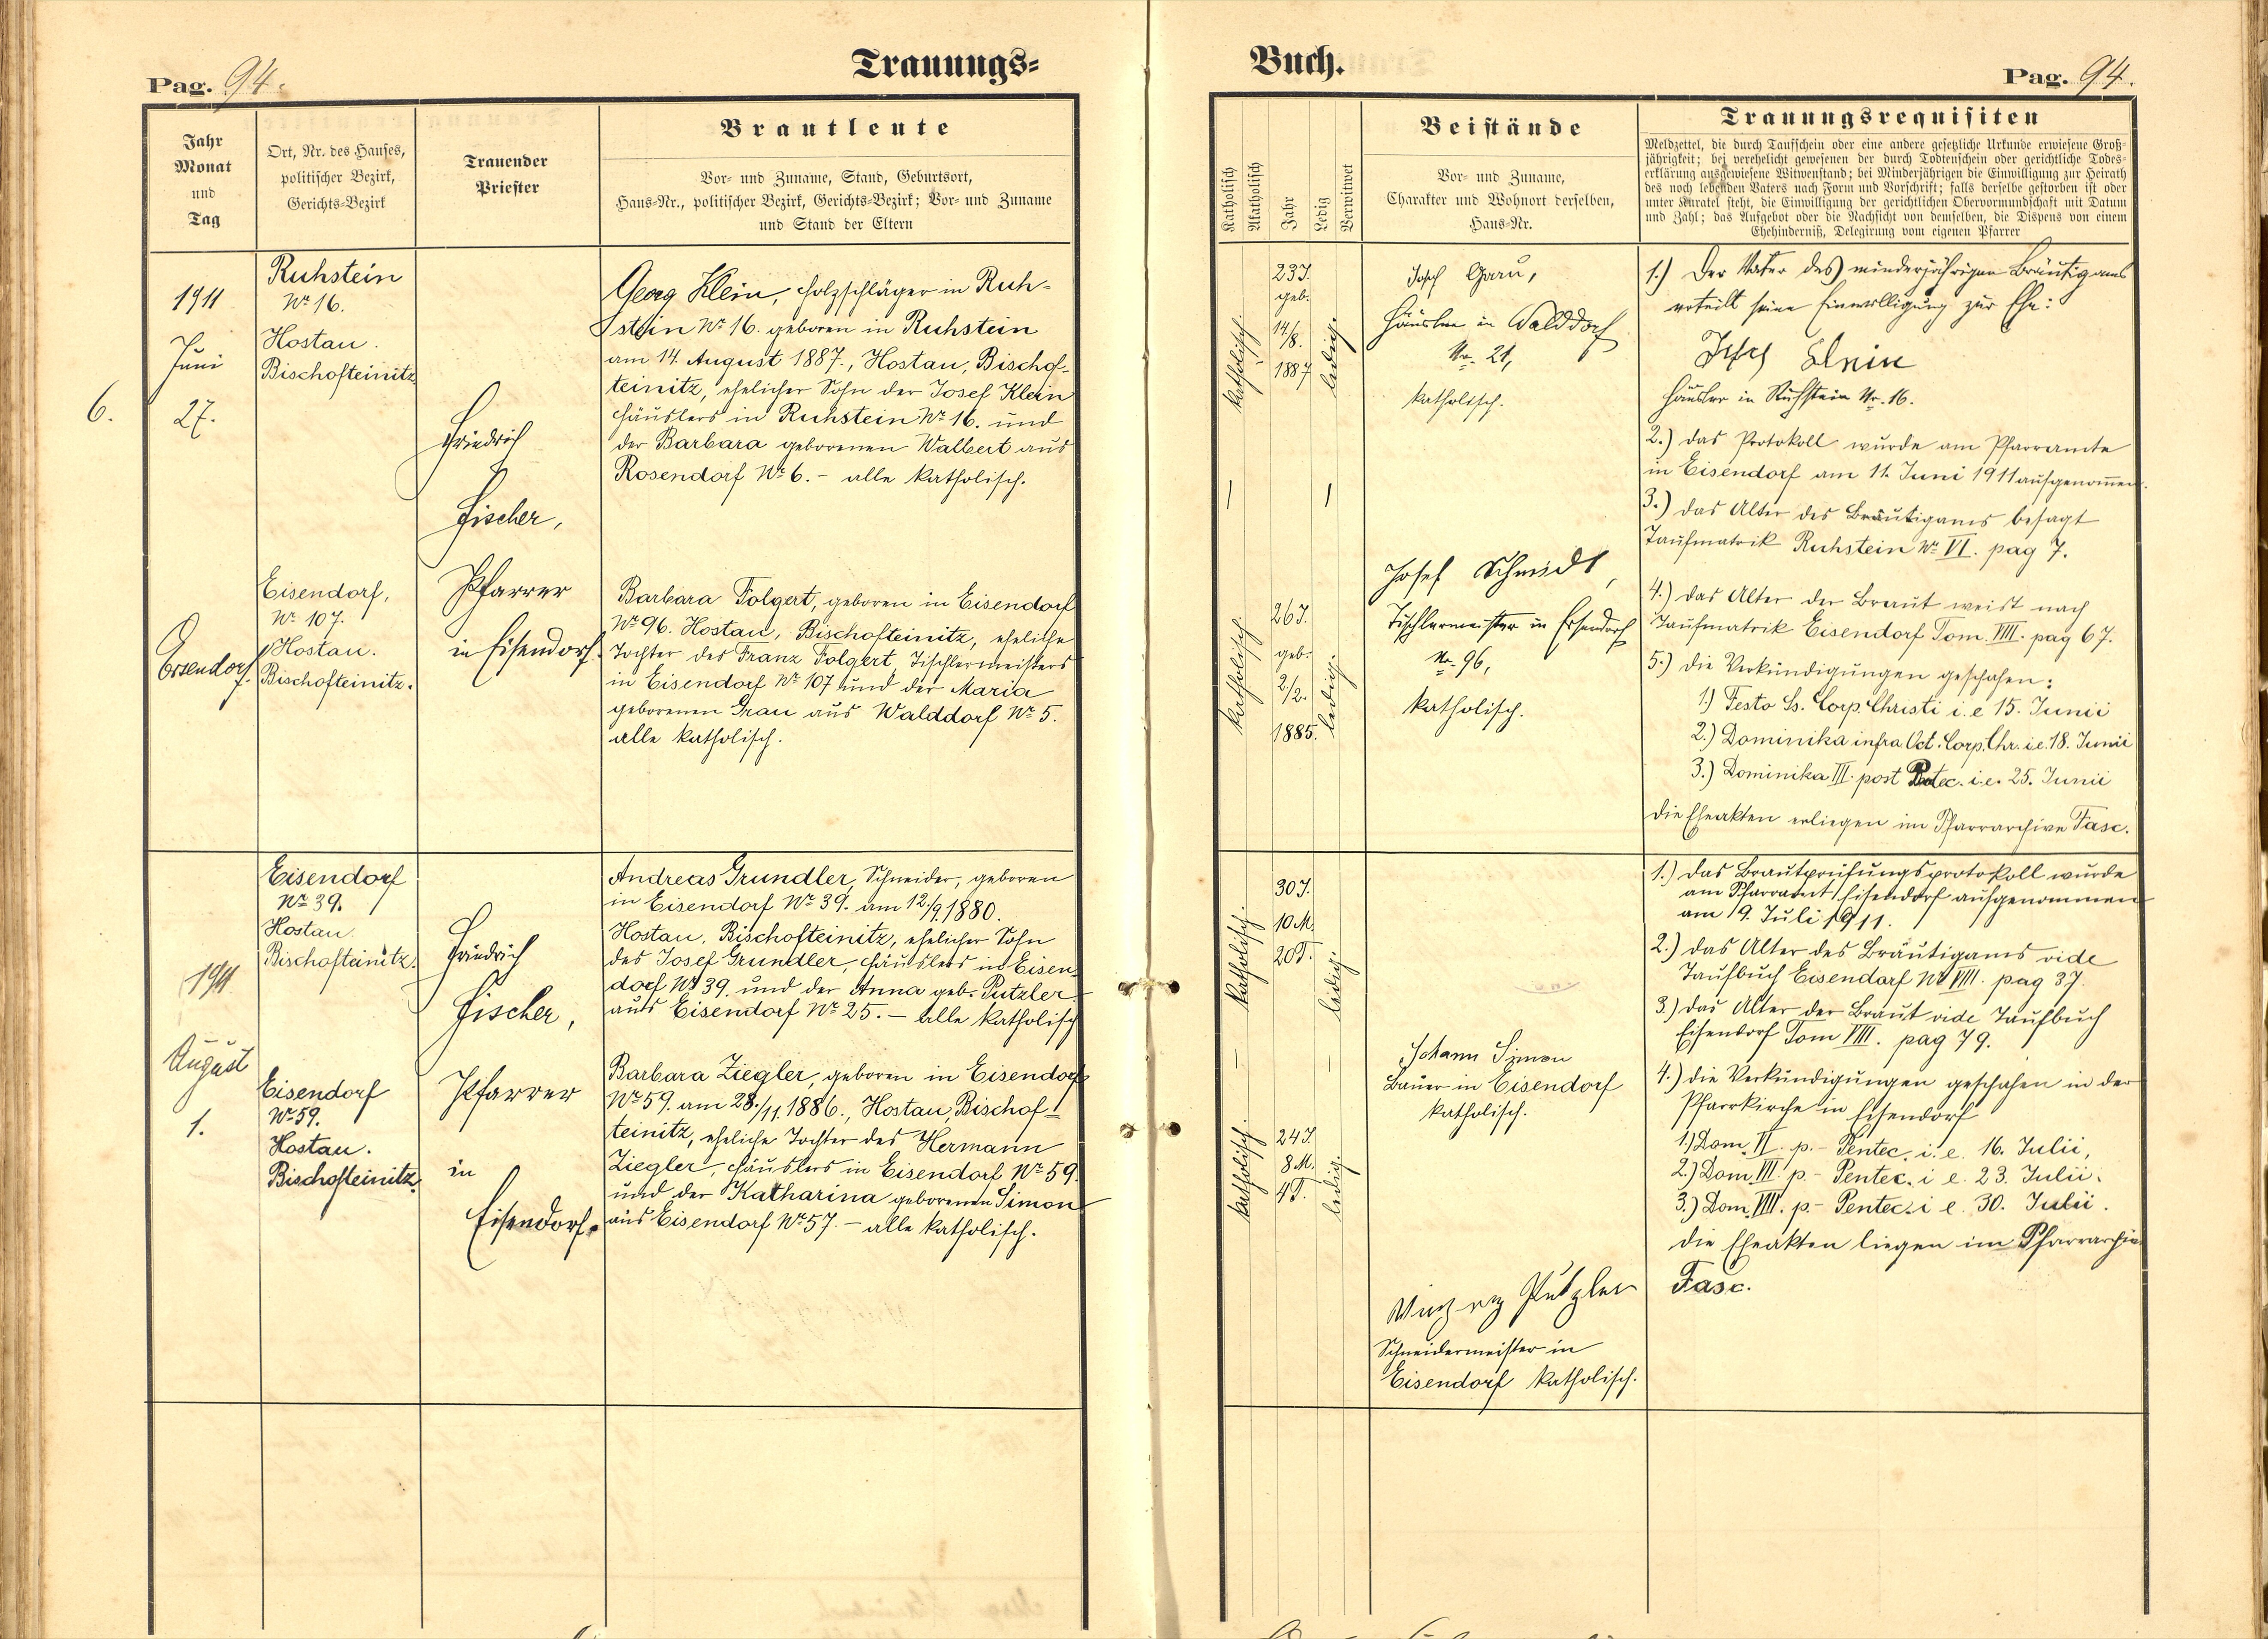 Pag. 94.
Trauungs=
Jahr
Monat
und
Tag
Ort, Nr. des Hauses,
politischer Bezirk,
Gerichts-Bezirk
Trauender
Priester
Brautleute
Vor- und Zuname, Stand, Geburtsort,
Haus-Nr., politischer Bezirk, Gerichts-Bezirk; Vor- und Zuname
und Stand der Eltern
6.
1911
Juni
27.
Eisendorf.
Ruhstein
No 16.
Hostau.
Bischofteinitz
Eisendorf,
No 107.
Hostau.
Bischofteinitz.
Friedrich
Fischer,
Pfarrer
in Eisendorf.
Georg Klein, Holzschläger in Ruh-
stein No 16. geboren in Ruhstein
am 14. August 1887., Hostau, Bischof-
teinitz, ehelicher Sohn der Josef Klein
Häuslers in Ruhstein No 16. und
der Barbara geborenen Walbert aus
Rosendorf No 6. - alle katholisch.
Barbara Folgert, geboren in Eisendorf
No 96. Hostau, Bischofteinitz, eheliche
Tochter des Franz Folgert, Tischlermeisters
in Eisendorf No 107 und der Maria
geborenen Grau aus Walddorf No 5.
alle katholisch.
1911
August
1.
Eisendorf
No 39.
Hostau
Bischofteinitz.
Eisendorf
No 59.
Hostau.
Bischofteinitz.
Friedrich
Fischer,
Pfarrer
in
Eisendorf.
Andreas Grundler, Schneider, geboren
in Eisendorf No 39. am 12./9. 1880.
Hostau, Bischofteinitz, ehelicher Sohn
des Josef Grundler, Häuslers in Eisen-
dorf No 39. und der Anna geb. Putzler
aus Eisendorf No 25. - alle katholisch
Barbara Ziegler, geboren in Eisendorf
No 59. am 28./11. 1886., Hostau, Bischof-
teinitz, eheliche Tochter des Hermann
Ziegler, Häuslers in Eisendorf No 59.
und der Katharina geborenen Simon
aus Eisendorf No 57. - alle katholisch.
Buch.
Pag. 94.
Katholisch
Akatholisch
Jahr
Ledig
Verwitwet
Beistände
Vor- und Zuname,
Charakter und Wohnort derselben,
Haus-Nr.
Trauungsrequisiten
Meldzettel, die durch Taufschein oder eine andere gesetzliche Urkunde erwiesene Groß-
jährigkeit; bei verehelicht gewesenen der durch Todtenschein oder gerichtliche Todes-
erklärung ausgewiesene Witwenstand; bei Minderjährigen die Einwilligung zur Heirath
des noch lebenden Vaters nach Form und Vorschrift; falls derselbe gestorben ist oder
unter Kuratel steht, die Einwilligung der gerichtlichen Obervormundschaft mit Datum
und Zahl; das Aufgebot oder die Nachsicht von demselben, die Dispens von einem
Ehehinderniß, Delegirung vom eigenen Pfarrer
katholisch.
23J.
geb.
14/8.
1887
ledig.
katholisch.
26J.
geb.
2/2.
1885.
ledig.
Josef
Häusler in Walddorf
Nr. 21,
katholisch.
Josef Schmidt,
Tischlermeister in Eisendorf
Nr. 96,
katholisch.
1.) Der Vater des minderjährigen Bräutigams
erteilt seine Einwilligung zur Ehe:
Josef Klein
Häusler in Ruhstein Nr. 16.
2.) das Protokoll wurde am Pfarramte
in Eisendorf am 11. Juni 1911 aufgenommen.
3.) das Alter des Bräutigams besagt
Taufmatrik Ruhstein No VI. pag 7.
4.) das Alter der Braut weist nach
Taufmatrik Eisendorf Tom. VIII. pag 67.
5.) die Verkündigungen geschahen:
1.) Festo Ss. Corp. Christi i. e 15. Junii
2.) Dominika infra Oct. Corp. Chr. i.e. 18. Junii
3.) Dominika III. post i.e. 25. Junii
die Eheakten erliegen im Pfarrarchive Fasc.
katholisch.
30J.
10 M.
20T.
ledig.
katholisch.
24J.
8 M.
4T.
ledig.
Johann Simon
Bauer in Eisendorf
katholisch.
Putzler
Schneidermeister in
Eisendorf katholisch.
1.) das Brautprüfungsprotokoll wurde
am Pfarramt Eisendorf aufgenommen
am 9. Juli 1911.
2.) das Alter des Bräutigams vide
Taufbuch Eisendorf No VIII. pag 37.
3.) das Alter der Braut vide Taufbuch
Eisendorf Tom VIII. pag 79.
4.) die Verkündigungen geschahen in der
Pfarrkirche in Eisendorf
1.) Dom. VI. p. - Pentec. i. e. 16. Julii,
2.) Dom. VII. p. - Pentec. i e. 23. Julii.
3.) Dom. VIII. p. - Pentec. i e. 30. Julii.
die Eheakten liegen im Pfarrarchiv
Fasc.